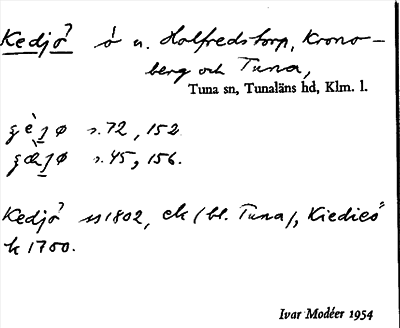 Kedjö? ö n. Holfredstorp, Krono-
berg och Tuna,
Tuna sn, Tunaläns hd, Klm. l.
s. 72, 152
s. 45, 156.
Kedjö? 1802, ek (bl. Tuna),
k 1700.
Ivar Modéer 1954